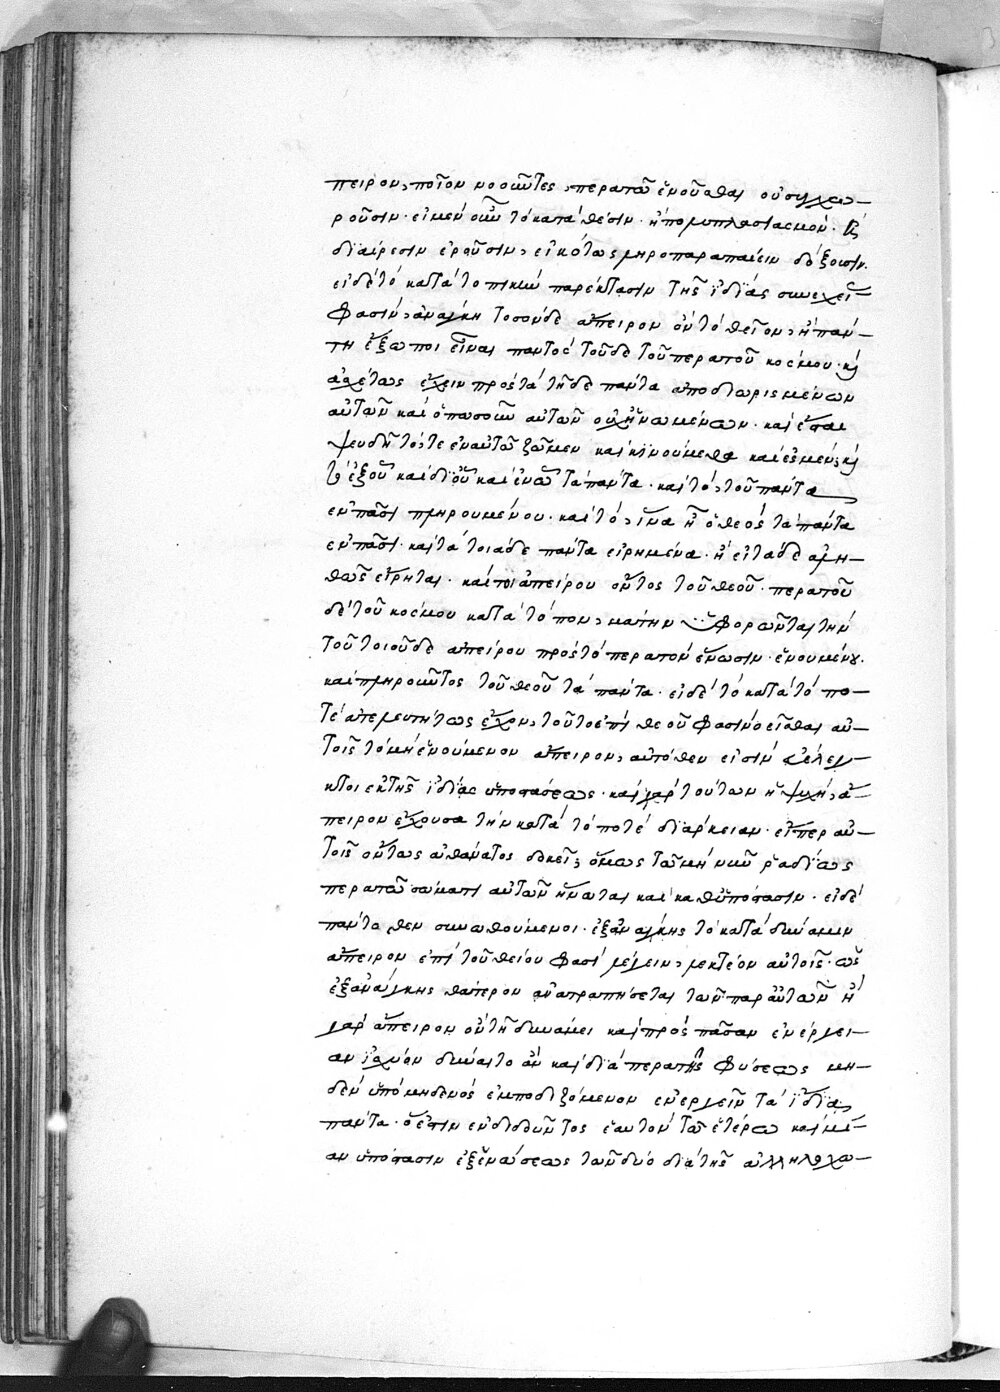 πειρον, ποῖον νοοῦντες, περατῷ ἑνοῦσθαι οὐ συγχω-
ροῦσιν. εἰ μὲν οὖν τὸ κατὰ θέσιν. ἢ πολυπλασιασμὸν. ἢ
διαίρεσιν ἐροῦσιν, εἰκότως ληροπαραπαίειν δόξουσιν.
εἰ δὲ τὸ κατὰ τοπικὴν παρέκτασιν τῆς ἰδίας συνεχεί-
φασιν, ἀνάγκη τοσόνδε ἄπειρον ὂν τὸ θεῖον, ἢ πάν-
τη ἔξω ποι εἶναι παντὸς τοῦδε τοῦ περατοῦ κόσμου. καὶ
ἀσχέτως ἔχειν πρὸς τὰ τῇδε πάντα ἀποδιωρισμένων
αὐτῶν καὶ ὁπωσοῦν αὐτῶν οὐχ ἡνωμένων. καὶ ἔσται
ψευδῆ τότε ἐν αὐτῷ ζῶμεν καὶ κινούμεθα καὶ ἐσμέν, καὶ
τὸ ἐξ οὗ καὶ δι' οὗ καὶ ἐν ᾧ τὰ πάντα. καὶ τὸ, τοῦ πάντα
ἐν πᾶσι πληρουμένου. καὶ τὸ, ἵνα ᾖ ὁ θεὸς τὰ πάντα
ἐν πᾶσι. καὶ τὰ τοιάδε πάντα εἰρημένα. ἢ εἰ τάδε ἀλη-
θῶς εἴρηται. καί τοι ἀπείρου ὄντος τοῦ θεοῦ. περατοῦ
δὲ τοῦ κόσμου κατὰ τόπον, μάτην ὑφορῶνται τὴν
τοῦ τοιοῦδε ἀπείρου πρὸς τὸ περατὸν ἕνωσιν. ἑνουμένου.
καὶ πληροῦντος τοῦ θεοῦ τὰ πάντα. εἰ δὲ τὸ κατὰ τὸ πο-
τὲ ἀτελευτήτως ἔχον, τοῦτο ἐπὶ θεοῦ φασὶ νοεῖσθαι αὐ-
τοῖς τὸ μὴ ἑνούμενον ἄπειρον, αὐτόθεν εἰσὶν ἐξελεγ-
κτοι ἐκ τῆς ἰδίας ὑποστάσεως. καὶ γὰρ τούτων ἡ ψυχὴ, ἄ-
πειρον ἔχουσα τὴν κατὰ τὸ ποτὲ διάρκειαν. εἴπερ αὐ-
τοῖς ὄντως ἀθάνατος δοκεῖ, ὅμως τῷ μὴ νῦν ῥαδίως
περατῷ σώματι αὐτῶν ἥνωται καὶ καθ' ὑπόστασιν. εἰ δὲ
πάντοθεν συνωθούμενοι. ἐξ ἀνάγκης τὸ κατὰ δύναμιν
ἄπειρον ἐπὶ τοῦ θείου φασὶ λέγειν, λεκτέον αὐτοῖς. ὡς
ἐξ ἀνάγκης θάτερον ἀνατραπήσεται τῶν παρ' αὐτῶν ἢ
γὰρ ἄπειρον ὂν τῇ δυνάμει καὶ πρὸς πᾶσαν ἐνέργει-
αν ἰσχύον δύναιτο ἂν καὶ διὰ περατῆς φύσεως μη-
δὲν ὑπὸ μηδενὸς ἐμποδιζόμενον ἐνεργεῖν τὰ ἴδια
πάντα. ὅ ἐστιν ἐνδιδοῦντος ἑαυτὸν τῷ ἑτέρῳ καὶ μί-
αν ὑπόστασιν ἐξ ἑνώσεως τῶν δύο διὰ τῆς ἀλληλοχω-